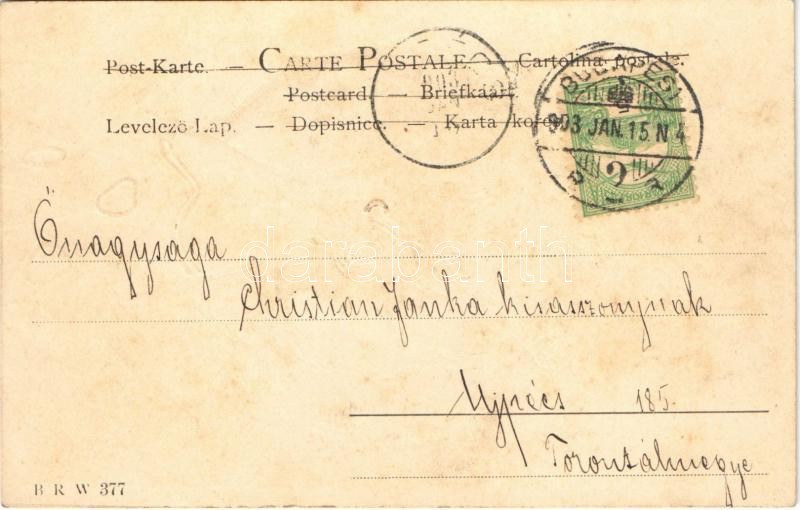 Post-Karte. — CARTE POSTALE — Cartolina postale.
Postcard. — Briefkaart
Levelező Lap. — Dopisnice. — Karta
BUDAPEST
903 JAN. 15. N 4
2
Őnagysága
Christian Janka kisasszonynak
Ujpécs 185.
Torontálmegye
B R W 377
darabanth